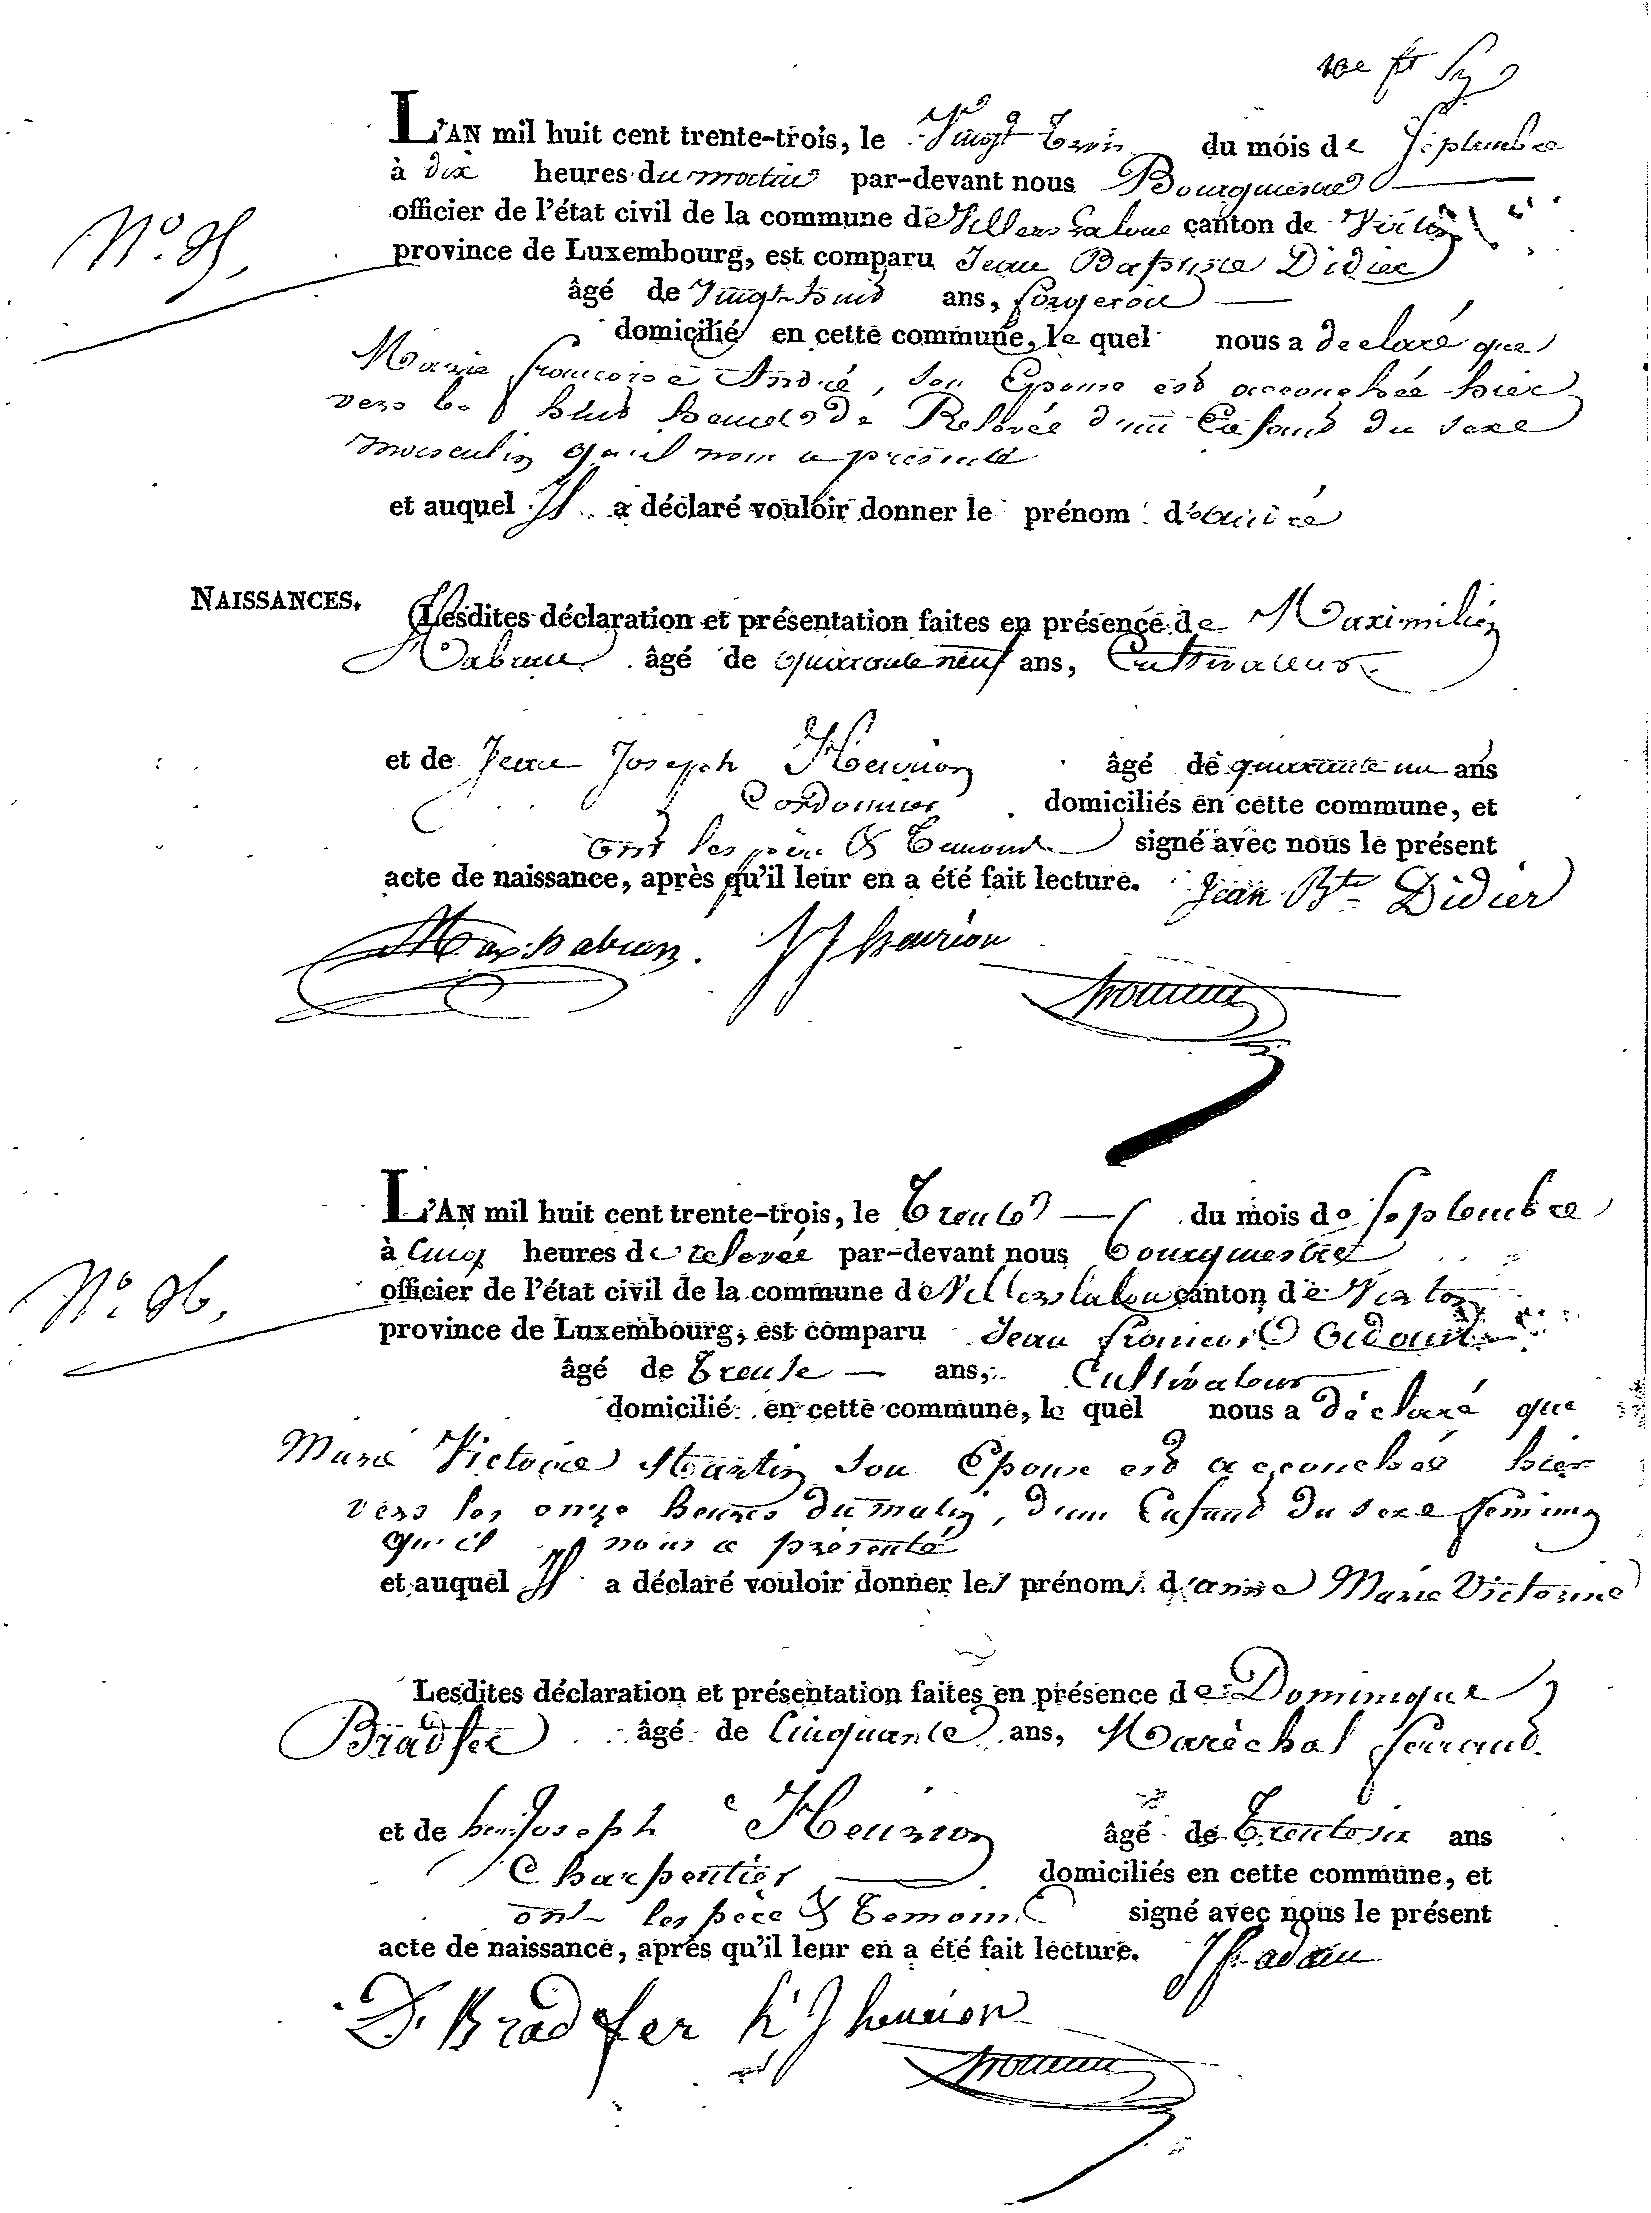 L'AN mil huit cent trente-trois, le Vingt Trois du mois de Septembre
à dix heures du matin par-devant nous Bourgmestre
officier de l'état civil de la commune de Villers laloue canton de Virton
N°. 95.
province de Luxembourg, est comparu Jean Baptiste Didier
âgé de Vingt huit ans, forgeron
domicilié en cette commune, le quel nous a declaré que
Marie françoise André, son Epouse est accouchée hier
vers les huit heures de Relevée d'un Enfant du sexe
masculin qu'il nous a présenté
et auquel Il a déclaré vouloir donner le prénom d'André
NAISSANCES.
Lesdites déclaration et présentation faites en présence de Maximilien
Habran âgé de quarante neuf ans, Cultivateur
et de Jean Joseph Henrion âgé de quarante un ans
Cordonnier domiciliés en cette commune, et
ont les père & Temoins signé avec nous le présent
acte de naissance, après qu'il leur en a été fait lecture. Jean Bte Didier
Max habran. JJ henrion
L'AN mil huit cent trente-trois, le Trente du mois de Septembre
à Cinq heures de relevée par-devant nous bourgmestre
N°. 96.
officier de l'état civil de la commune de Villers laloue canton de Virton
province de Luxembourg, est comparu Jean françois
âgé de Trente ans, Cultivateur
domicilié en cette commune, le quel nous a déclaré que
Marie Victoire Martin son Epouse est accouchée hier
vers les onze heures du matin, d'un Enfant du sexe feminin
qu'il nous a présenté
et auquel Il a déclaré vouloir donner les prénoms d'anne Marie Victorine
Lesdites déclaration et présentation faites en présence de Dominique
Bradfer âgé de Cinquante ans, Maréchal ferrand
et de henri Joseph Henrion âgé de Trente six ans
Charpentier domiciliés en cette commune, et
ont les père & Temoins signé avec nous le présent
acte de naissance, après qu'il leur en a été fait lecture. J f adam
D. Bradfer h J henrion